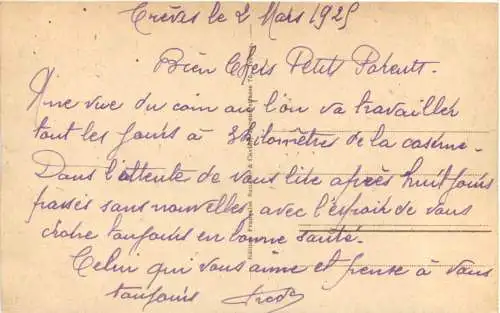 Trèves le 2 Mars 1925
Bien Chers Petits Parents.
Une vue du coin au l'on va travailler
tout les jours à 3 kilomètres de la caserne.
Dans l'attente de vous lire après huit jours
passés sans nouvelles, avec l'espoir de vous
croire toujours en bonne santé.
Celui qui vous aime et pense à vous
toujours